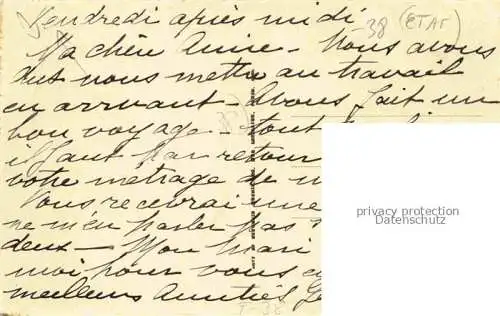 Vendredi après midi
38 (ETAT)
Ma chère Amie – Nous avons
dus nous mettre au travail
en arrivant – Avons fait un
bon voyage – tout
il faut par retour
votre métrage de
Vous recevrai une
ne m'en parler pas
deux – Mon Mari
moi pour vous
meilleurs Amitiés
T-38
privacy protection
Datenschutz